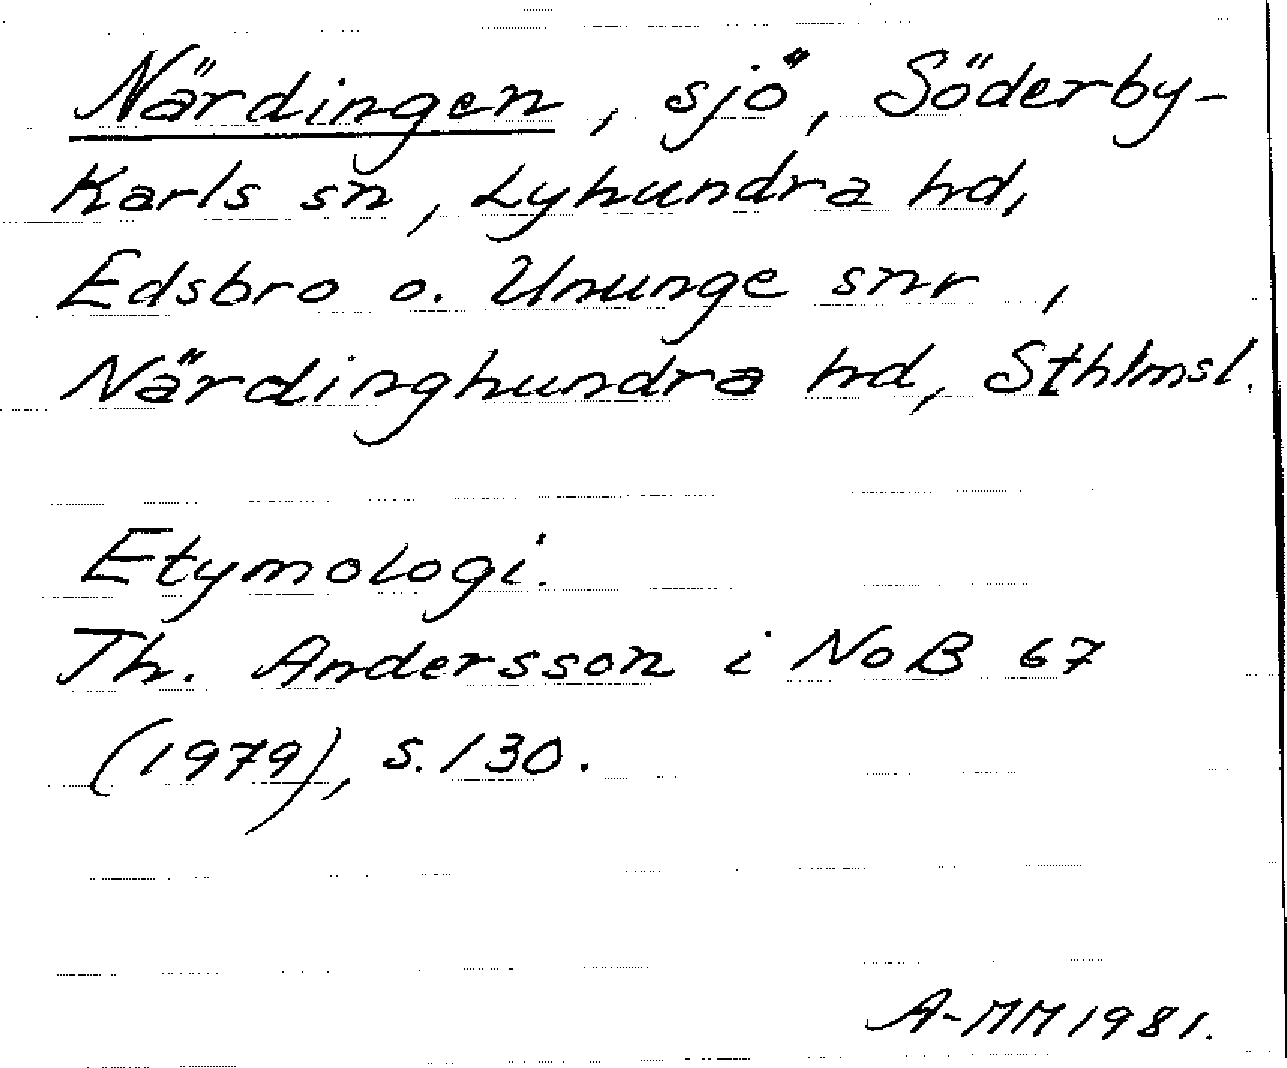 Närdingen, sjö, Söderby-
Karls sn, Lyhundra hd,
Edsbro o. Ununge snr,
Närdinghundra hd, Sthlmsl.
Etymologi.
Th. Andersson i NoB 67
(1979), s. 130.
A-MM 1981.